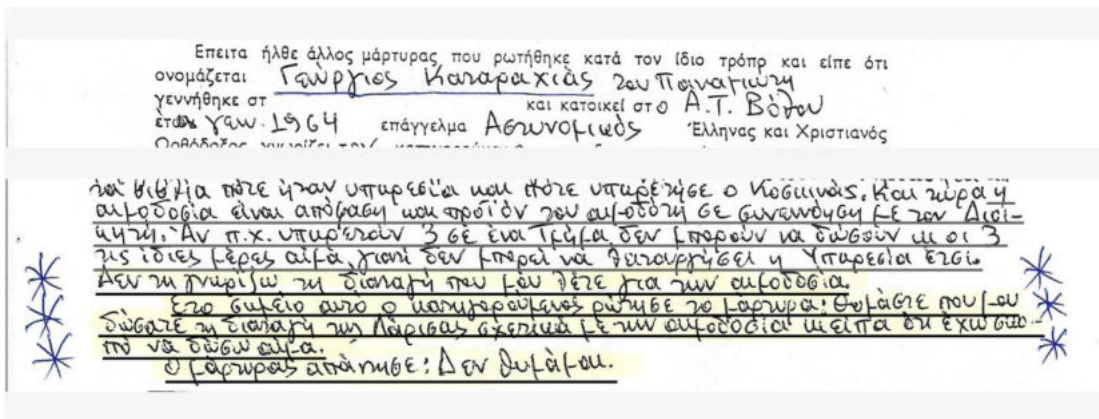 Επειτα ήλθε άλλος μάρτυρας που ρωτήθηκε κατά τον ίδιο τρόπρ και είπε ότι
ονομάζεται Γεώργιος Καταραχιάς του Παναγιώτη
γεννήθηκε στ και κατοικεί στο Α.Τ. Βόλου
ετών γεν. 1964 επάγγελμα Αστυνομικός Έλληνας και Χριστιανός
Ορθόδοξος γνωρίζει
τα βιβλία πότε ήταν υπηρεσία και πότε υπηρέτησε ο Κοσκινάς. Και τώρα η
αιμοδοσία είναι απόφαση και προϊόν του αιμοδότη σε συνεννόηση με τον Διοι-
κητή. Αν π.χ. υπηρετούν 3 σε ένα Τμήμα δεν μπορούν να δώσουν κι οι 3
τις ίδιες μέρες αίμα, γιατί δεν μπορεί να λειτουργήσει η Υπηρεσία έτσι.
Δεν τη γνωρίζω τη διαταγή που μου λέτε για την αιμοδοσία.
Στο σημείο αυτό ο κατηγορούμενος ρώτησε το μάρτυρα: Θυμάστε που μου
δώσατε τη διαταγή της Λάρισας σχετικά με την αιμοδοσία κι είπα ότι έχω σκο-
πό να δώσω αίμα.
Ο μάρτυρας απάντησε: Δεν θυμάμαι.